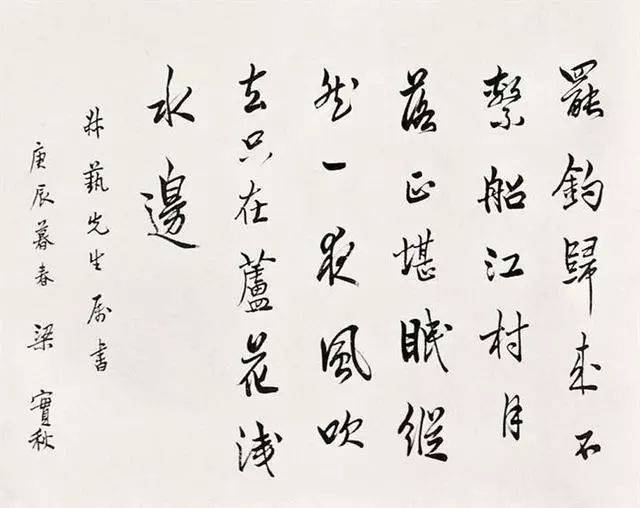 罷釣歸來不
繫船江村月
落正堪眠縱
然一夜風吹
去只在蘆花浅
水邊
井藝先生属書
庚辰暮春 梁實秋